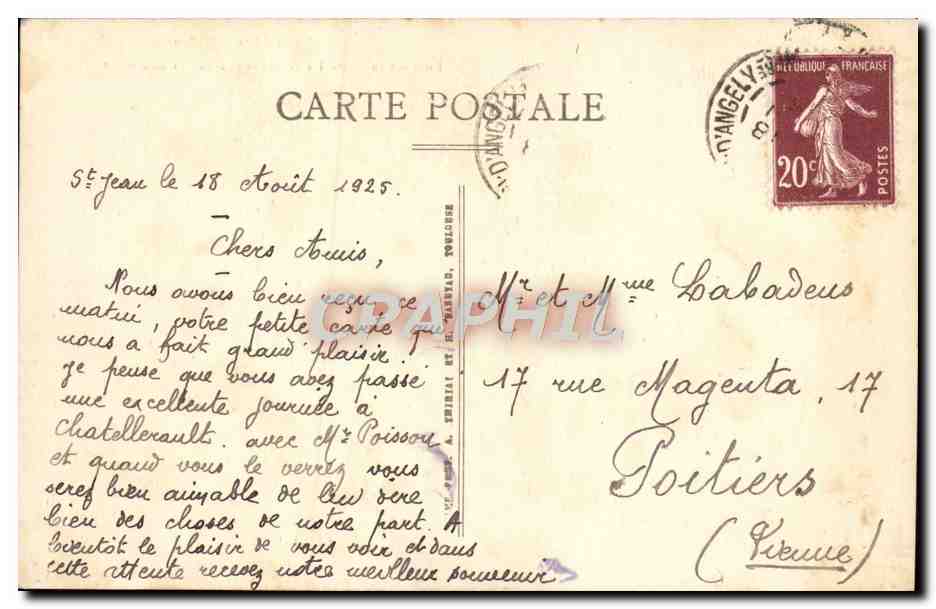 CARTE POSTALE
D'ANGELY
D'ANGELY
REPUBLIQUE FRANÇAISE
20c
POSTES
St Jean le 18 Août 1925.
Chers Amis,
Nous avons bien reçu ce
matin, votre petite carte qui
nous a fait grand plaisir.
je pense que vous avez passé
une excellente journée à
Chatellerault. avec Mr Poisson
et quand vous le verrez vous
serez bien aimable de lui dire
bien des choses de notre part. A
bientôt le plaisir de vous voir et dans
cette attente recevez notre meilleur souvenir
TOULOUSE
Mr et Mme Labadens
17 rue Magenta, 17
Poitiers
(Vienne)
CPAPHIL